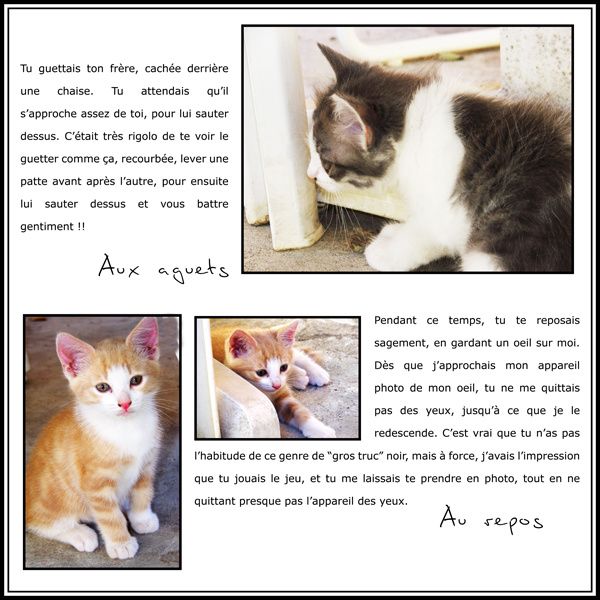 Tu guettais ton frère, cachée derrière
une chaise. Tu attendais qu'il
s'approche assez de toi, pour lui sauter
dessus. C'était très rigolo de te voir le
guetter comme ça, recourbée, lever une
patte avant après l'autre, pour ensuite
lui sauter dessus et vous battre
gentiment !!
Àux aguets
Pendant ce temps, tu te reposais
sagement, en gardant un oeil sur moi.
Dès que j'approchais mon appareil
photo de mon oeil, tu ne me quittais
pas des yeux, jusqu'à ce que je le
redescende. C'est vrai que tu n'as pas
l'habitude de ce genre de "gros truc" noir, mais à force, j'avais l'impression
que tu jouais le jeu, et tu me laissais te prendre en photo, tout en ne
quittant presque pas l'appareil des yeux.
Àu repos